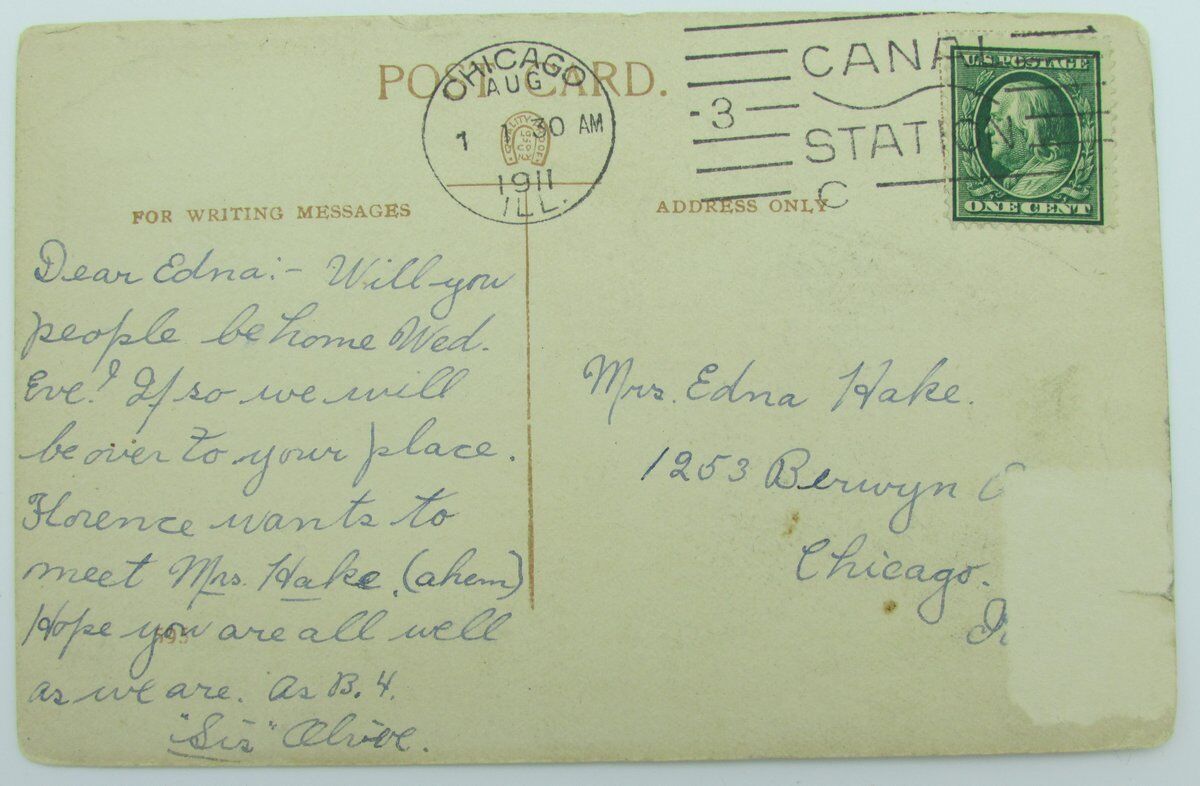 POST CARD.
CHICAGO
AUG
1 1 30 AM
1911
ILL.
- 3
CANAL
STATION
C
U.S. POSTAGE
ONE CENT
FOR WRITING MESSAGES
ADDRESS ONLY
Dear Edna:- Will you
people be home Wed.
Eve? If so we will
be over to your place.
Florence wants to
meet Mrs. Hake. (ahem)
Hope you are all well
as we are. As B. 4.
"Sis" Olive.
Mrs. Edna Hake.
1253 Berwyn
Chicago.